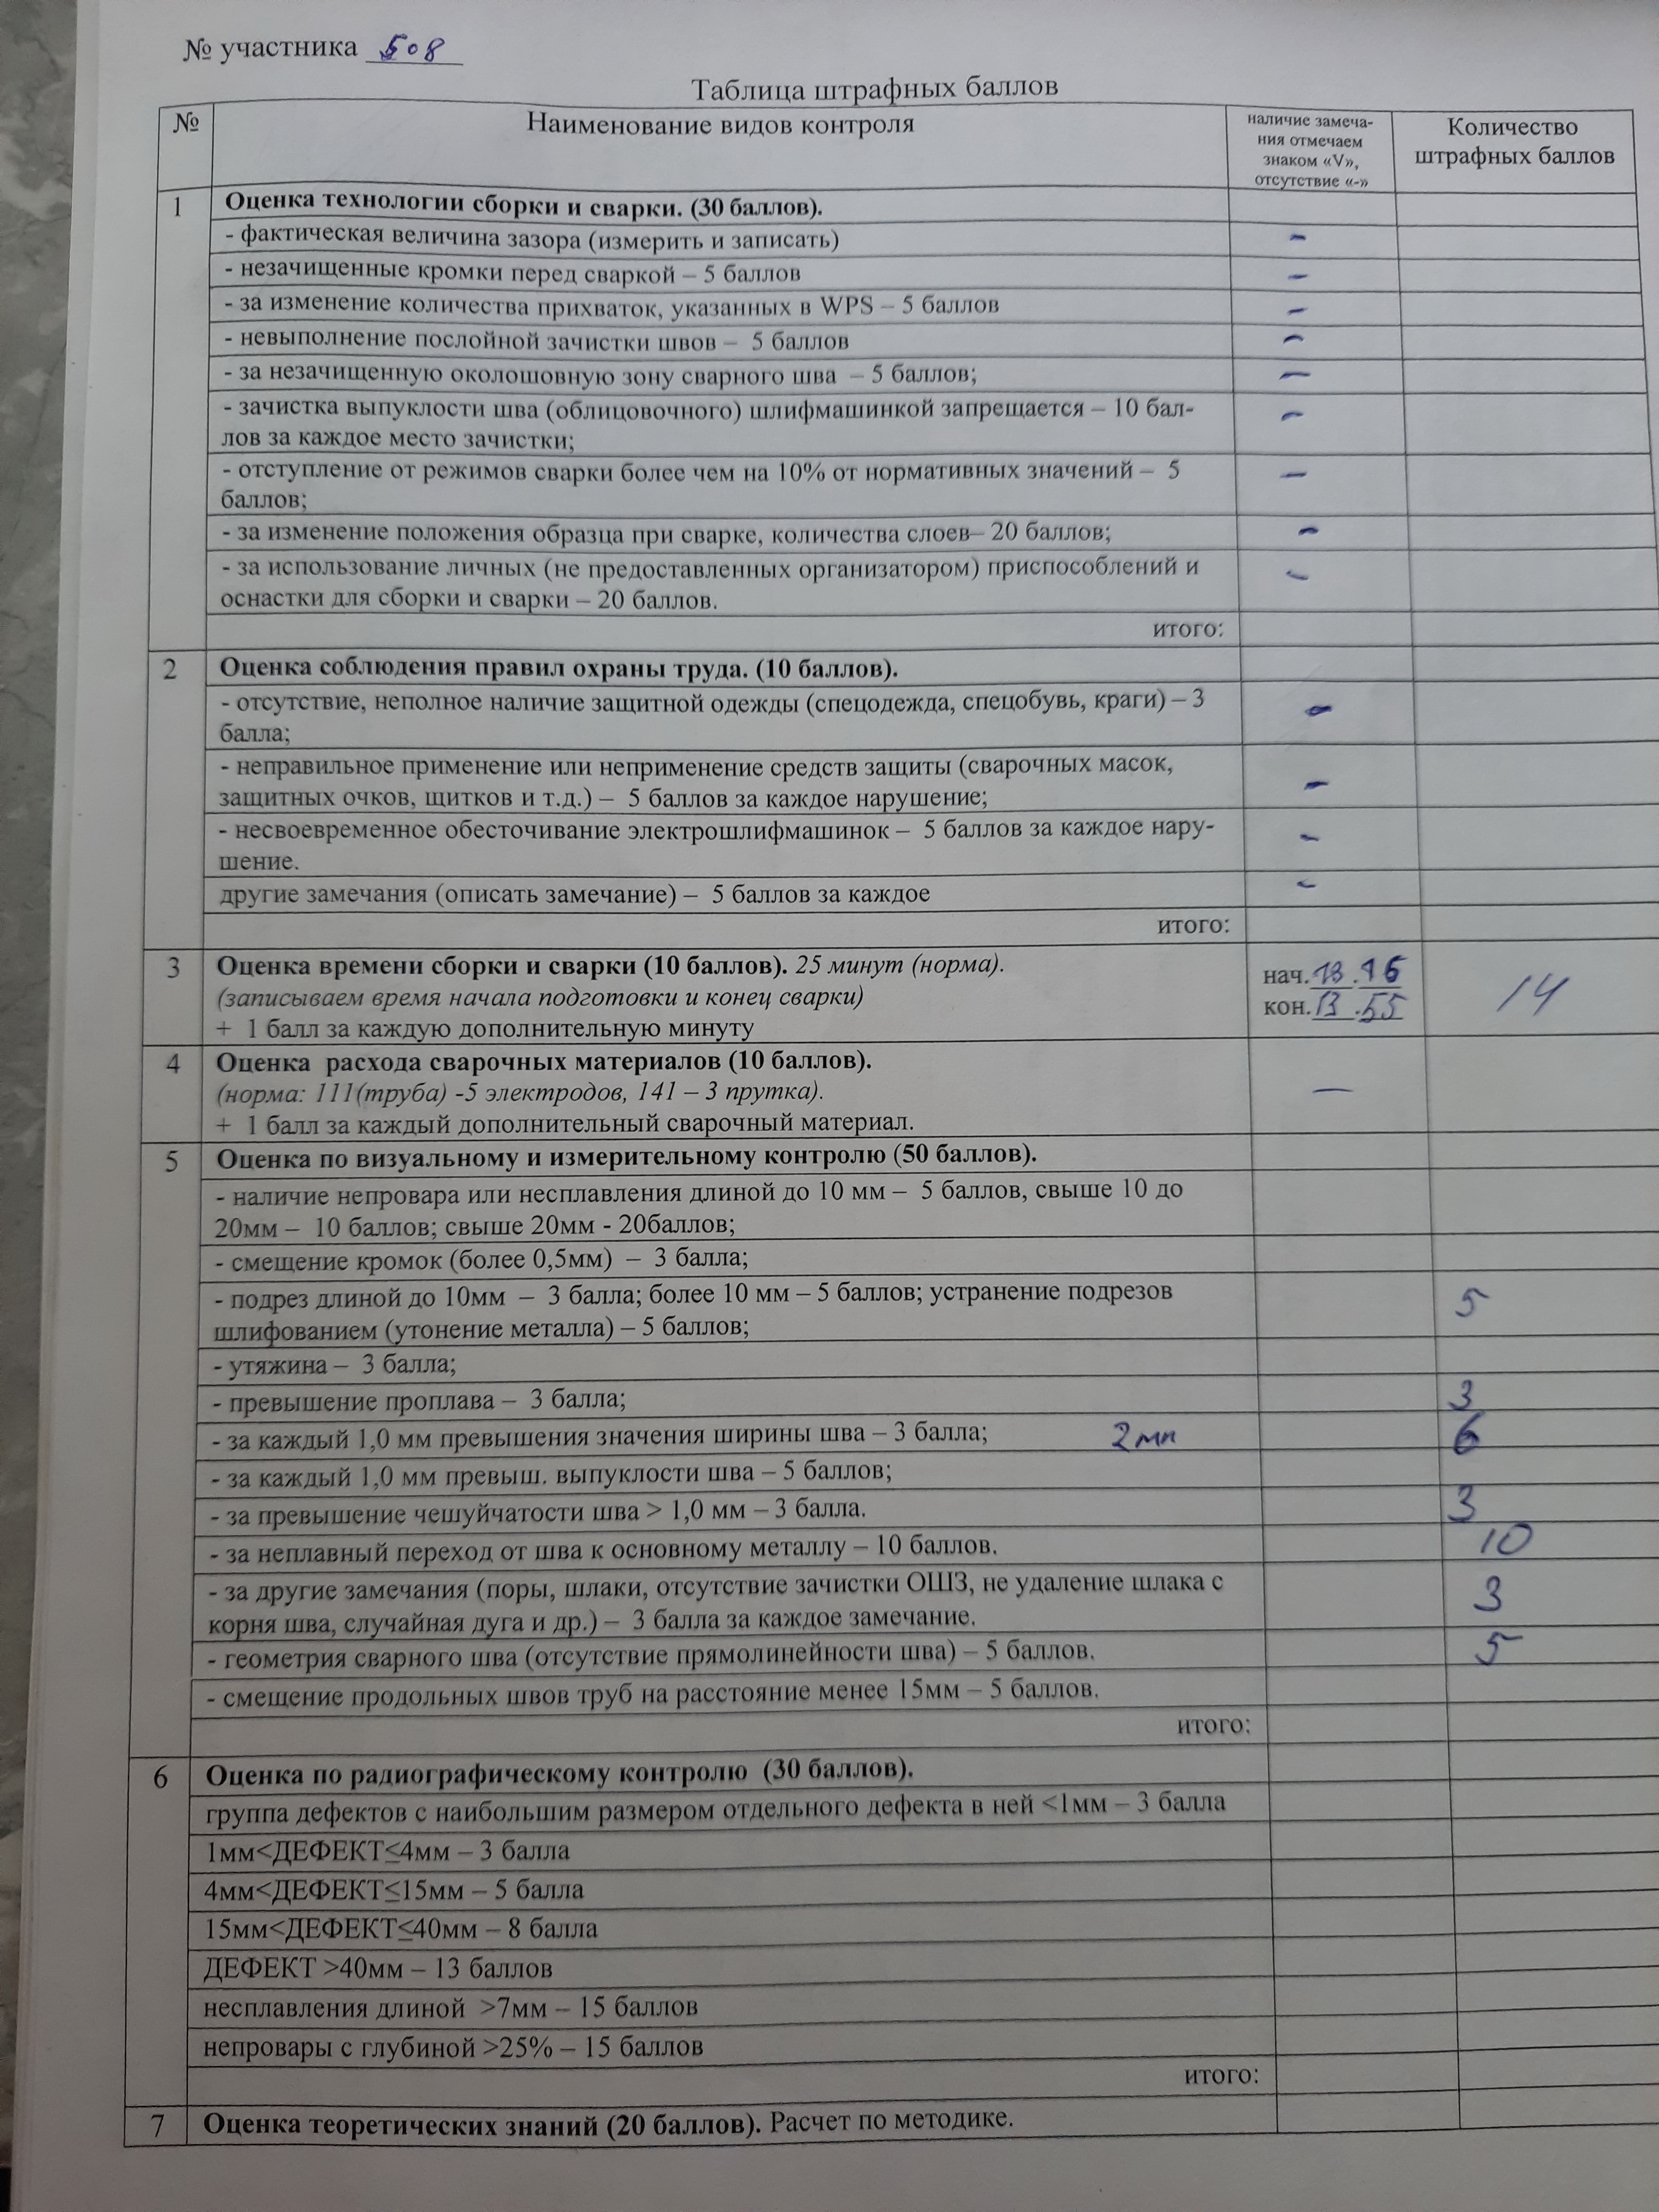 № участника 508
Таблица штрафных баллов
№
Наименование видов контроля
наличие замеча-
ния отмечаем
знаком «V»,
отсутствие «-»
Количество
штрафных баллов
1
Оценка технологии сборки и сварки. (30 баллов).
- фактическая величина зазора (измерить и записать) -
- незачищенные кромки перед сваркой – 5 баллов -
- за изменение количества прихваток, указанных в WPS – 5 баллов -
- невыполнение послойной зачистки швов – 5 баллов -
- за незачищенную околошовную зону сварного шва – 5 баллов; -
- зачистка выпуклости шва (облицовочного) шлифмашинкой запрещается – 10 бал-
лов за каждое место зачистки; -
- отступление от режимов сварки более чем на 10% от нормативных значений – 5
баллов; -
- за изменение положения образца при сварке, количества слоев– 20 баллов; -
- за использование личных (не предоставленных организатором) приспособлений и
оснастки для сборки и сварки – 20 баллов. -
итого:
2
Оценка соблюдения правил охраны труда. (10 баллов).
- отсутствие, неполное наличие защитной одежды (спецодежда, спецобувь, краги) – 3
балла; -
- неправильное применение или неприменение средств защиты (сварочных масок,
защитных очков, щитков и т.д.) – 5 баллов за каждое нарушение; -
- несвоевременное обесточивание электрошлифмашинок – 5 баллов за каждое нару-
шение. -
другие замечания (описать замечание) – 5 баллов за каждое -
итого:
3
Оценка времени сборки и сварки (10 баллов). 25 минут (норма).
(записываем время начала подготовки и конец сварки)
+ 1 балл за каждую дополнительную минуту
нач. 13.16
кон. 13.55
14
4
Оценка расхода сварочных материалов (10 баллов).
(норма: 111(труба) -5 электродов, 141 – 3 прутка).
+ 1 балл за каждый дополнительный сварочный материал.
-
5
Оценка по визуальному и измерительному контролю (50 баллов).
- наличие непровара или несплавления длиной до 10 мм – 5 баллов, свыше 10 до
20мм – 10 баллов; свыше 20мм - 20баллов;
- смещение кромок (более 0,5мм) – 3 балла;
- подрез длиной до 10мм – 3 балла; более 10 мм – 5 баллов; устранение подрезов
шлифованием (утонение металла) – 5 баллов; 5
- утяжина – 3 балла;
- превышение проплава – 3 балла; 3
- за каждый 1,0 мм превышения значения ширины шва – 3 балла; 2мм 6
- за каждый 1,0 мм превыш. выпуклости шва – 5 баллов;
- за превышение чешуйчатости шва > 1,0 мм – 3 балла. 3
- за неплавный переход от шва к основному металлу – 10 баллов. 10
- за другие замечания (поры, шлаки, отсутствие зачистки ОШЗ, не удаление шлака с
корня шва, случайная дуга и др.) – 3 балла за каждое замечание. 3
- геометрия сварного шва (отсутствие прямолинейности шва) – 5 баллов. 5
- смещение продольных швов труб на расстояние менее 15мм – 5 баллов.
итого:
6
Оценка по радиографическому контролю (30 баллов).
группа дефектов с наибольшим размером отдельного дефекта в ней <1мм – 3 балла
1мм<ДЕФЕКТ≤4мм – 3 балла
4мм<ДЕФЕКТ≤15мм – 5 балла
15мм<ДЕФЕКТ≤40мм – 8 балла
ДЕФЕКТ >40мм – 13 баллов
несплавления длиной >7мм – 15 баллов
непровары с глубиной >25% – 15 баллов
итого:
7
Оценка теоретических знаний (20 баллов). Расчет по методике.